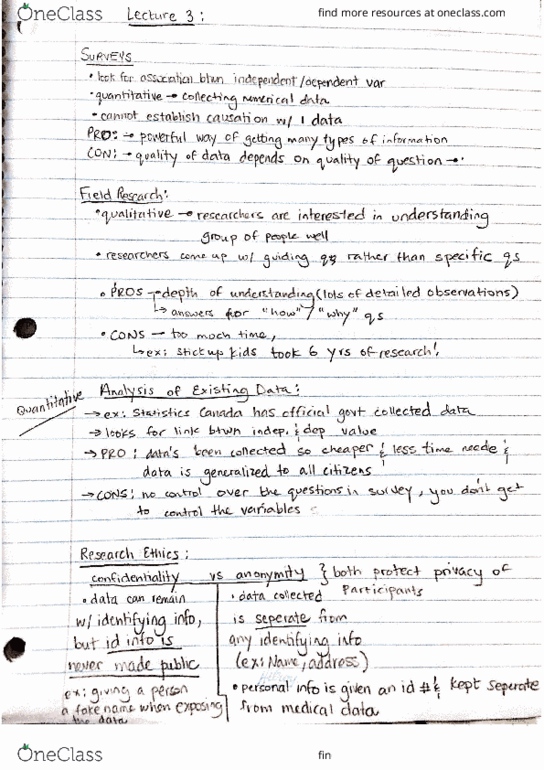 OneClass
Lecture 3:
find more resources at oneclass.com
SURVEYS
• look for association btwn independent/dependent var
• quantitative → collecting numerical data
• cannot establish causation w/ 1 data
PRO: → powerful way of getting many types of information
CON: → quality of data depends on quality of question →
Field Research:
• qualitative → researchers are interested in understanding
group of people well
• researchers come up w/ guiding qs rather than specific qs
• PROS → depth of understanding (lots of detailed observations)
↳ answers for "how" / "why" qs
• CONS → too much time,
↳ ex: stickup kids took 6 yrs of research!
Quantitative
Analysis of Existing Data:
→ ex: Statistics Canada has official govt collected data
→ looks for link btwn indep. & dep value
→ PRO: data's been collected so cheaper & less time neede &
data is generalized to all citizens
→ CONS: no control over the questions in survey, you don't get
to control the variables
Research Ethics:
confidentiality vs anonymity } both protect privacy of
Participants
• data can remain
w/ identifying info,
but id info is
never made public
ex: giving a person
a fake name when exposing
the data
• data collected
is seperate from
any identifying info
(ex: Name, address)
• personal info is given an id # & kept seperate
from medical data
OneClass
fin